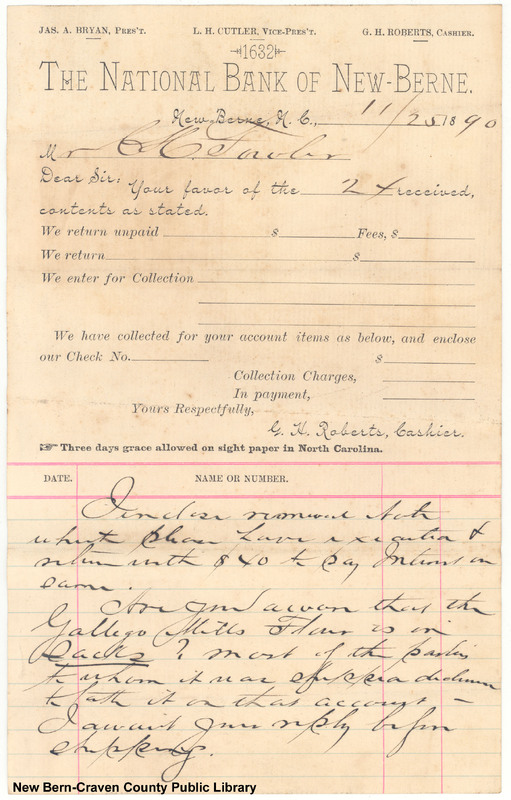 JAS. A. BRYAN, PRES'T. L. H. CUTLER, VICE-PRES'T. G. H. ROBERTS, CASHIER.
1632
THE NATIONAL BANK OF NEW-BERNE.
New-Berne, N. C., 11/25 1890
Mr C. H. Fowler
Dear Sir: Your favor of the 24 received,
contents as stated.
We return unpaid $ Fees, $
We return $
We enter for Collection
We have collected for your account items as below, and enclose
our Check No. $
Collection Charges,
In payment,
Yours Respectfully,
G. H. Roberts, Cashier.
☞ Three days grace allowed on sight paper in North Carolina.
DATE. NAME OR NUMBER.
I enclose renewal Note
which please have executed &
return with $40 to pay Interest on
same.
Are you aware that the
Gallego Mills Flour is in
sacks? most of the parties
to whom it was offered declined
to take it on that account –
I await your reply before
shipping.
New Bern-Craven County Public Library